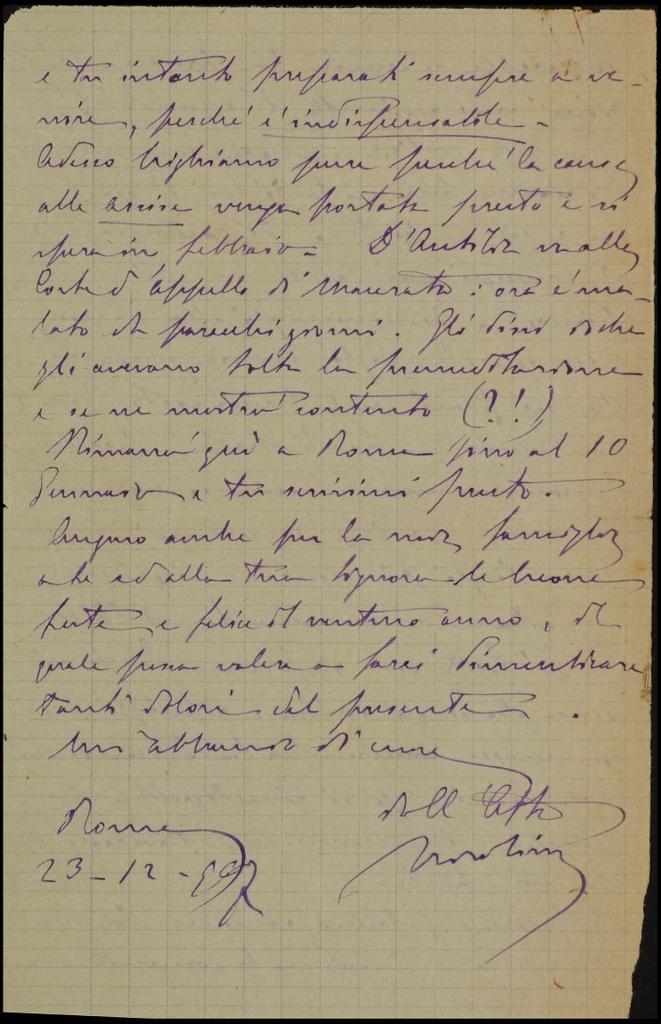 e tu intanto preparati sempre a ve-
nire, perché è indispensabile -
Adesso brighiamo pure perché la causa
alle assise venga portata presto e si
spera in febbraio - D'Antilia va alla
Corte d'Appello di Macerata: ora è ma-
lato da parecchi giorni. Gli dissi che
gli avevano tolta la premeditazione
e se ne mostrò contento (?!)
Rimarrò quì a Roma fino al 10
Gennaio e tu scrivimi presto.
Auguro anche per la mia famiglia
a te ed alla tua Signora le buone
feste e felice il venturo anno, il
quale possa valere a farci dimenticare
tanti dolori del presente.
Un abbraccio di cuore
dall'
Roma
23-12-97